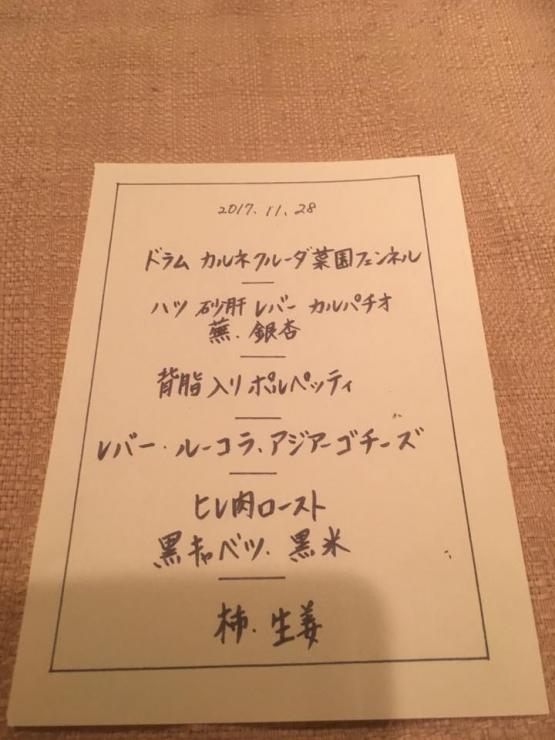 2017.11.28
ドラム カルネクルーダ 菜園フェンネル
ハツ 砂肝 レバー カルパチオ
蕪、銀杏
背脂入り ポルペッティ
レバー・ルーコラ、アジアーゴチーズ
ヒレ肉ロースト
黒キャベツ、黒米
柿、生姜